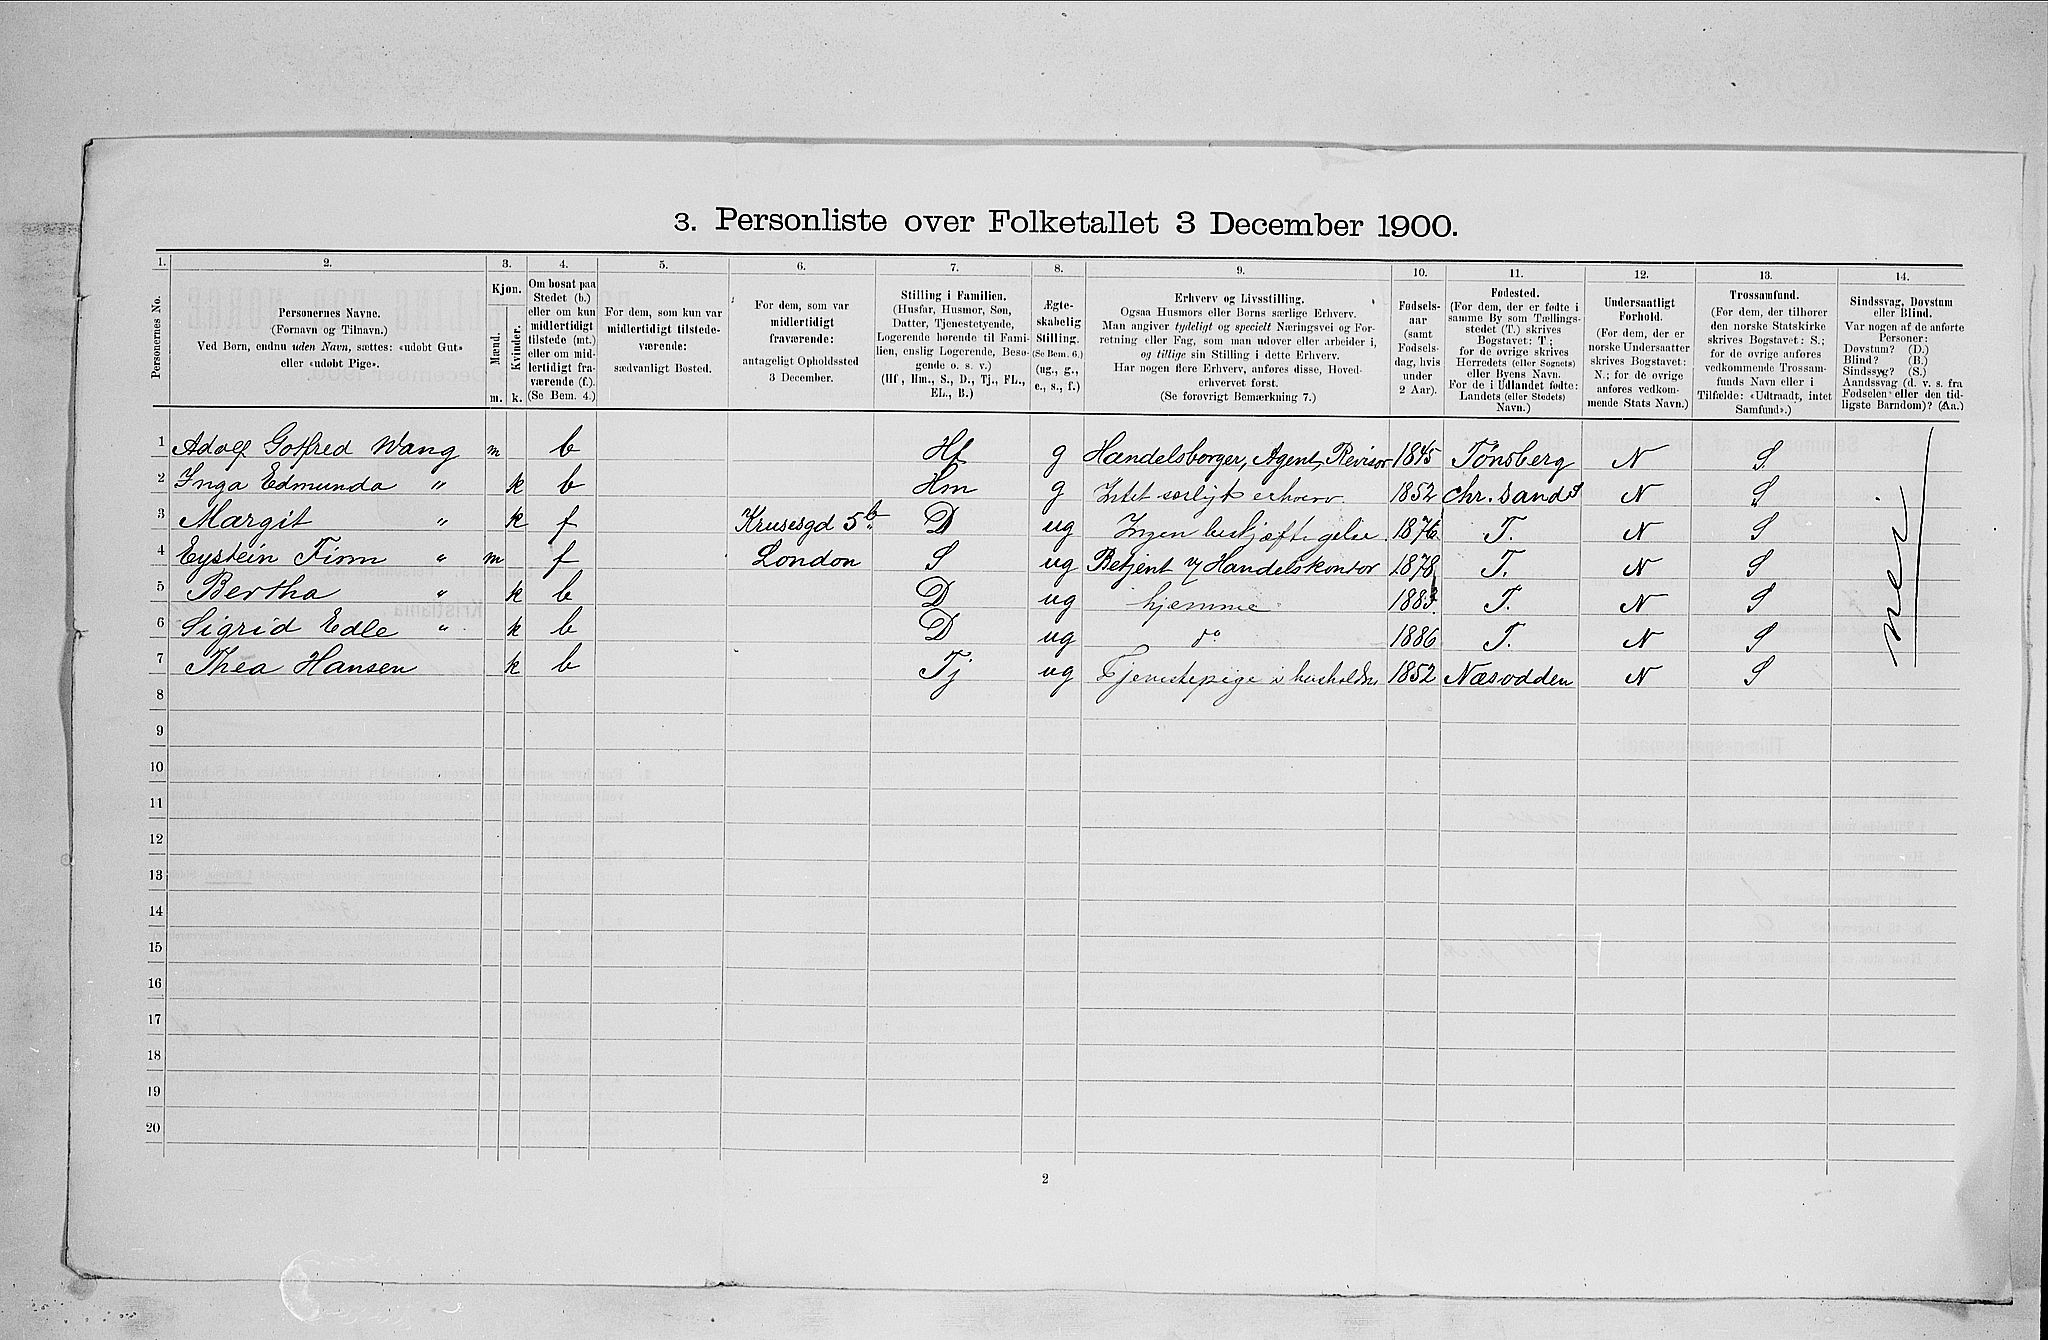 3. Personliste over Folketallet 3 December 1900.
1. 2. 3. 4. 5. 6. 7. 8. 9. 10. 11. 12. 13. 14.
Personernes No.
Personernes Navne.
(Fornavn og Tilnavn.)
Ved Børn, endnu uden Navn, sættes: «udøbt Gut»
eller «udøbt Pige».
Kjøn.
Mænd.
Kvinder.
m. k.
Om bosat paa
Stedet (b.)
eller om kun
midlertidigt
tilstede (mt.)
eller om mid-
lertidigt fra-
værende (f.).
(Se Bem. 4.)
For dem, som kun var
midlertidigt tilstede-
værende:
sædvanligt Bosted.
For dem, som var
midlertidigt
fraværende:
antageligt Opholdssted
3 December.
Stilling i Familien.
(Husfar, Husmor, Søn,
Datter, Tjenestetyende,
Logerende hørende til Fami-
lien, enslig Logerende, Besø-
gende o. s. v.)
(Hf, Hm., S., D., Tj., FL.,
EL., B.)
Ægte-
skabelig
Stilling.
(Se Bem. 6.)
(ug., g.,
e., s., f.)
Erhverv og Livsstilling.
Ogsaa Husmors eller Børns særlige Erhverv.
Man angiver tydeligt og specielt Næringsvei og For-
retning eller Fag, som man udøver eller arbeider i,
og tillige sin Stilling i dette Erhverv.
Har nogen flere Erhverv, anføres disse, Hoved-
erhvervet først.
(Se forøvrigt Bemærkning 7.)
Fødsels-
aar
(samt
Fødsels-
dag, hvis
under
2 Aar).
Fødested.
(For dem, der er fødte i
samme By som Tællings-
stedet (T.) skrives
Bogstavet: T;
for de øvrige skrives
Herredets (eller Sognets)
eller Byens Navn.
For de i Udlandet fødte:
Landets (eller Stedets)
Navn.)
Undersaatligt
Forhold.
(For dem, der er
norske Undersaatter
skrives Bogstavet:
N.; for de øvrige
anføres vedkom-
mende Stats Navn.)
Trossamfund.
(For dem, der tilhører
den norske Statskirke
skrives Bogstavet: S.;
for de øvrige anføres
vedkommende Trossam-
funds Navn eller i
Tilfælde: «Udtraadt, intet
Samfund».)
Sindssvag, Døvstum
eller Blind.
Var nogen af de anførte
Personer:
Døvstum? (D.)
Blind? (B.)
Sindssyg? (S.)
Aandssvag (d. v. s. fra
Fødselen eller den tid-
ligste Barndom)? (Aa.)
1 Adolf Gotfred Wang m b Hf g Handelsborger, Agent, Revisor 1845 Tönsberg N S.
2 Inga Edmunda " k b Hm g Intet særligt erhverv. 1852 Chr. Sand S N S
3 Margit " k f Krusesgd 5 b D ug Ingen beskjæftigelse. 1876 T. N S
4 Eystein Finn " m f London S ug Betjent v/ Handelskontor 1878 T. N S
5 Bertha " k b D ug hjemme 1883 T. N S
6 Sigrid Edle " k b D ug do 1886 T. N S
7 Thea Hansen k b Tj ug Tjenestepige i husholdn 1852 Næsodden N S
8
9
10
11
12
13
14
15
16
17
18
19
20
nei
2